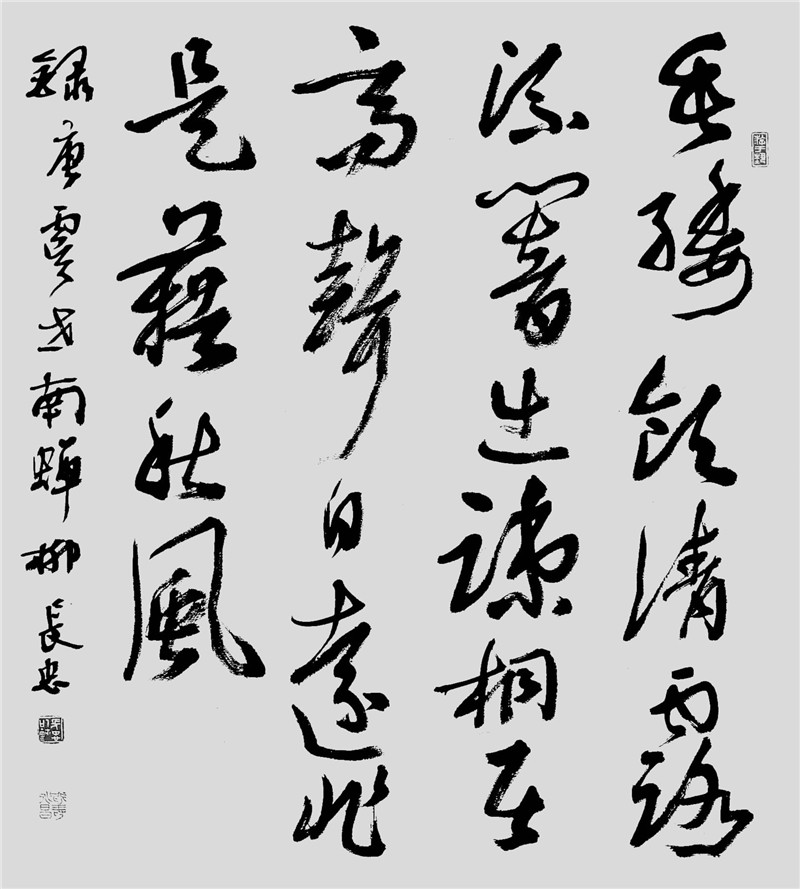 垂緌飲清露
流響出疎桐居
高聲自遠非
是藉秋風
錄唐虞世南蟬柳長忠